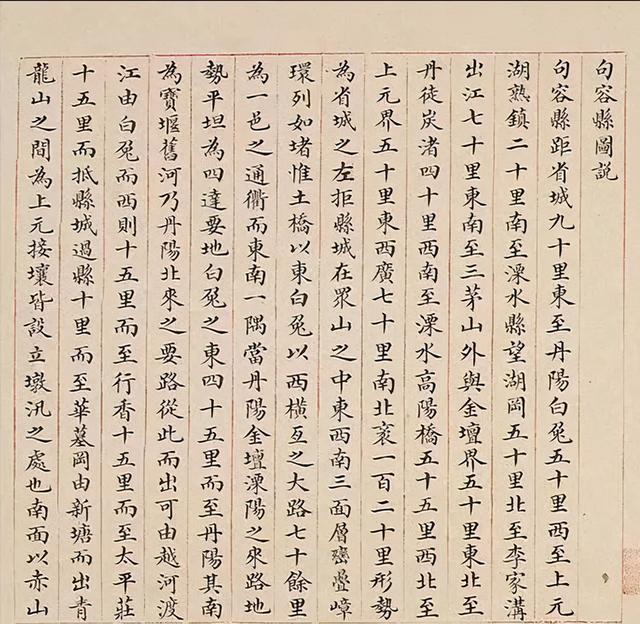 句容縣圖説
句容縣距省城九十里東至丹陽白兔五十里西至上元
湖熟鎮二十里南至溧水縣望湖岡五十里北至李家溝
出江七十里東南至三茅山外與金壇界五十里東北至
丹徒炭渚四十里西南至溧水高陽橋五十五里西北至
上元界五十里東西廣七十里南北袤一百二十里形勢
為省城之左拒縣城在眾山之中東西南三面層巒疊嶂
環列如堵惟土橋以東白兔以西橫亙之大路七十餘里
為一邑之通衢而東南一隅當丹陽金壇溧陽之來路地
勢平坦為四達要地白兔之東四十五里而至丹陽其南
為寶堰舊河乃丹陽北來之要路從此而出可由越河渡
江由白兔而西則十五里而至行香十五里而至太平莊
十五里而抵縣城過縣十里而至華墓岡由新塘而出青
龍山之間為上元接壤皆設立墩汛之處也南面以赤山